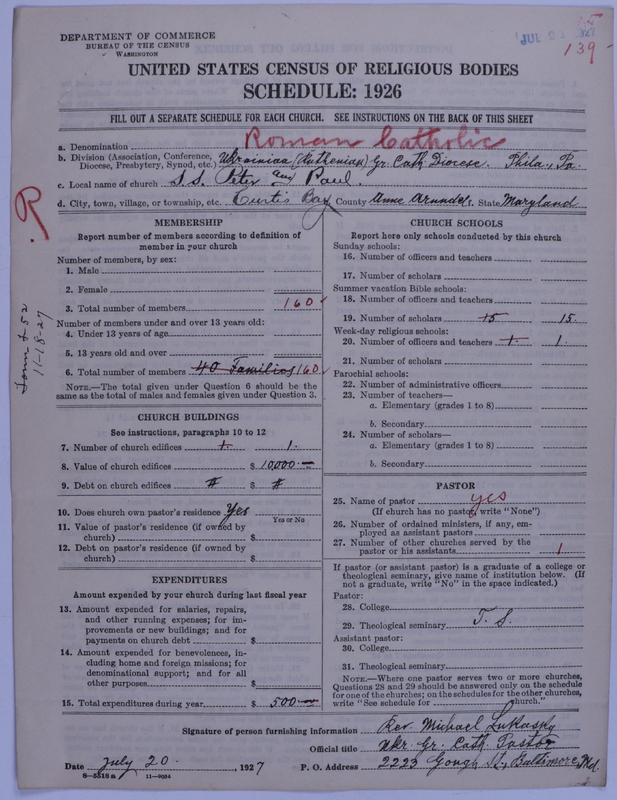 DEPARTMENT OF COMMERCE
BUREAU OF THE CENSUS
WASHINGTON
JUL 2
139
UNITED STATES CENSUS OF RELIGIOUS BODIES
SCHEDULE: 1926
FILL OUT A SEPARATE SCHEDULE FOR EACH CHURCH. SEE INSTRUCTIONS ON THE BACK OF THIS SHEET
a. Denomination Roman Catholic
b. Division (Association, Conference, Diocese, Presbytery, Synod, etc.) Ukrainian (Ruthenian) Gr. Cath. Diocese. Phila., Pa.
c. Local name of church S.S. Peter and Paul.
d. City, town, village, or township, etc. Curtis Bay County Anne Arundel. State Maryland
R
Form 452
11-18-27
MEMBERSHIP
Report number of members according to definition of member in your church
Number of members, by sex:
1. Male
2. Female
3. Total number of members 160
Number of members under and over 13 years old:
4. Under 13 years of age
5. 13 years old and over
6. Total number of members 40 Families 160
NOTE.—The total given under Question 6 should be the same as the total of males and females given under Question 3.
CHURCH BUILDINGS
See instructions, paragraphs 10 to 12
7. Number of church edifices 1 1.
8. Value of church edifices $ 10,000.—
9. Debt on church edifices # $ #
10. Does church own pastor's residence? Yes
Yes or No
11. Value of pastor's residence (if owned by church) $
12. Debt on pastor's residence (if owned by church) $
EXPENDITURES
Amount expended by your church during last fiscal year
13. Amount expended for salaries, repairs, and other running expenses; for improvements or new buildings; and for payments on church debt $
14. Amount expended for benevolences, including home and foreign missions; for denominational support; and for all other purposes $
15. Total expenditures during year $ 500.—
CHURCH SCHOOLS
Report here only schools conducted by this church
Sunday schools:
16. Number of officers and teachers
17. Number of scholars
Summer vacation Bible schools:
18. Number of officers and teachers
19. Number of scholars 15 15.
Week-day religious schools:
20. Number of officers and teachers 1 1.
21. Number of scholars
Parochial schools:
22. Number of administrative officers
23. Number of teachers—
a. Elementary (grades 1 to 8)
b. Secondary
24. Number of scholars—
a. Elementary (grades 1 to 8)
b. Secondary
PASTOR
25. Name of pastor yes
(If church has no pastor, write "None")
26. Number of ordained ministers, if any, employed as assistant pastors
27. Number of other churches served by the pastor or his assistants 1
If pastor (or assistant pastor) is a graduate of a college or theological seminary, give name of institution below. (If not a graduate, write "No" in the space indicated.)
Pastor:
28. College
29. Theological seminary T. S.
Assistant pastor:
30. College
31. Theological seminary
NOTE.—Where one pastor serves two or more churches, Questions 28 and 29 should be answered only on the schedule for one of the churches; on the schedules for the other churches, write "See schedule for church."
Signature of person furnishing information Rev. Michael Lukasky
Official title Ukr. Gr. Cath. Pastor
Date July 20. , 1927 P. O. Address 2223 Gough St., Baltimore, Md.
8—5518a 11—9034